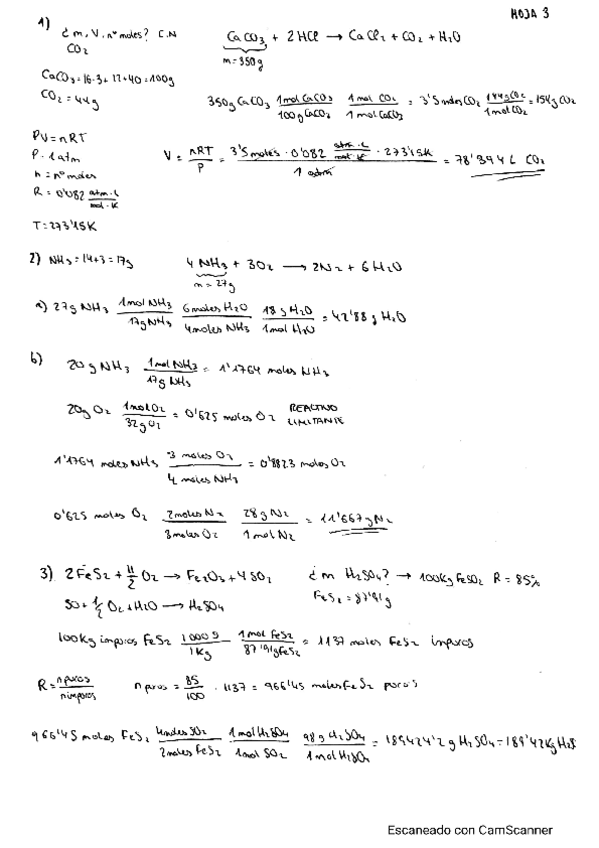 HOJA 3
1) ¿m, V, nº moles? C.N CO2
CaCO3 + 2HCl → CaCl2 + CO2 + H2O
m=350g
CaCO3=16·3+12+40=100g
CO2=44g
350g CaCO3 1mol CaCO3/100g CaCO3 1mol CO2/1mol CaCO3 = 3'5 moles CO2 44gCO2/1mol CO2 = 154g CO2
PV=nRT
P=1atm
n=nº moles
R=0'082 atm·L/mol·K
T=273'15K
V = nRT/P = 3'5moles·0'082 atm·L/mol·K·273'15K/1 atm = 78'394 L CO2
2) NH3=14+3=17g
4NH3 + 3O2 → 2N2 + 6H2O
m=27g
a) 27g NH3 1mol NH3/17g NH3 6moles H2O/4moles NH3 18g H2O/1mol H2O = 42'88g H2O
b) 20g NH3 1mol NH3/17g NH3 = 1'1764 moles NH3
20g O2 1mol O2/32g O2 = 0'625 moles O2 REACTIVO LIMITANTE
1'1764 moles NH3 3 moles O2/4 moles NH3 = 0'8823 moles O2
0'625 moles O2 2moles N2/3moles O2 28g N2/1mol N2 = 11'667g N2
3) 2FeS2 + 11/2 O2 → Fe2O3 + 4SO2 ¿m H2SO4? → 100Kg FeSO2 R=85%
SO+1/2 O2+H2O → H2SO4
FeS2=87'91g
100Kg impuros FeS2 1000g/1Kg 1mol FeS2/87'91gFeS2 = 1137 moles FeS2 impuros
R=n puros/n impuros
n puros = 85/100 · 1137 = 966'45 moles FeS2 puros
966'45 moles FeS2 4moles SO2/2moles FeS2 1mol H2SO4/1mol SO2 98g H2SO4/1mol H2SO4 = 189424'2 g H2SO4 = 189'42Kg H2S
Escaneado con CamScanner